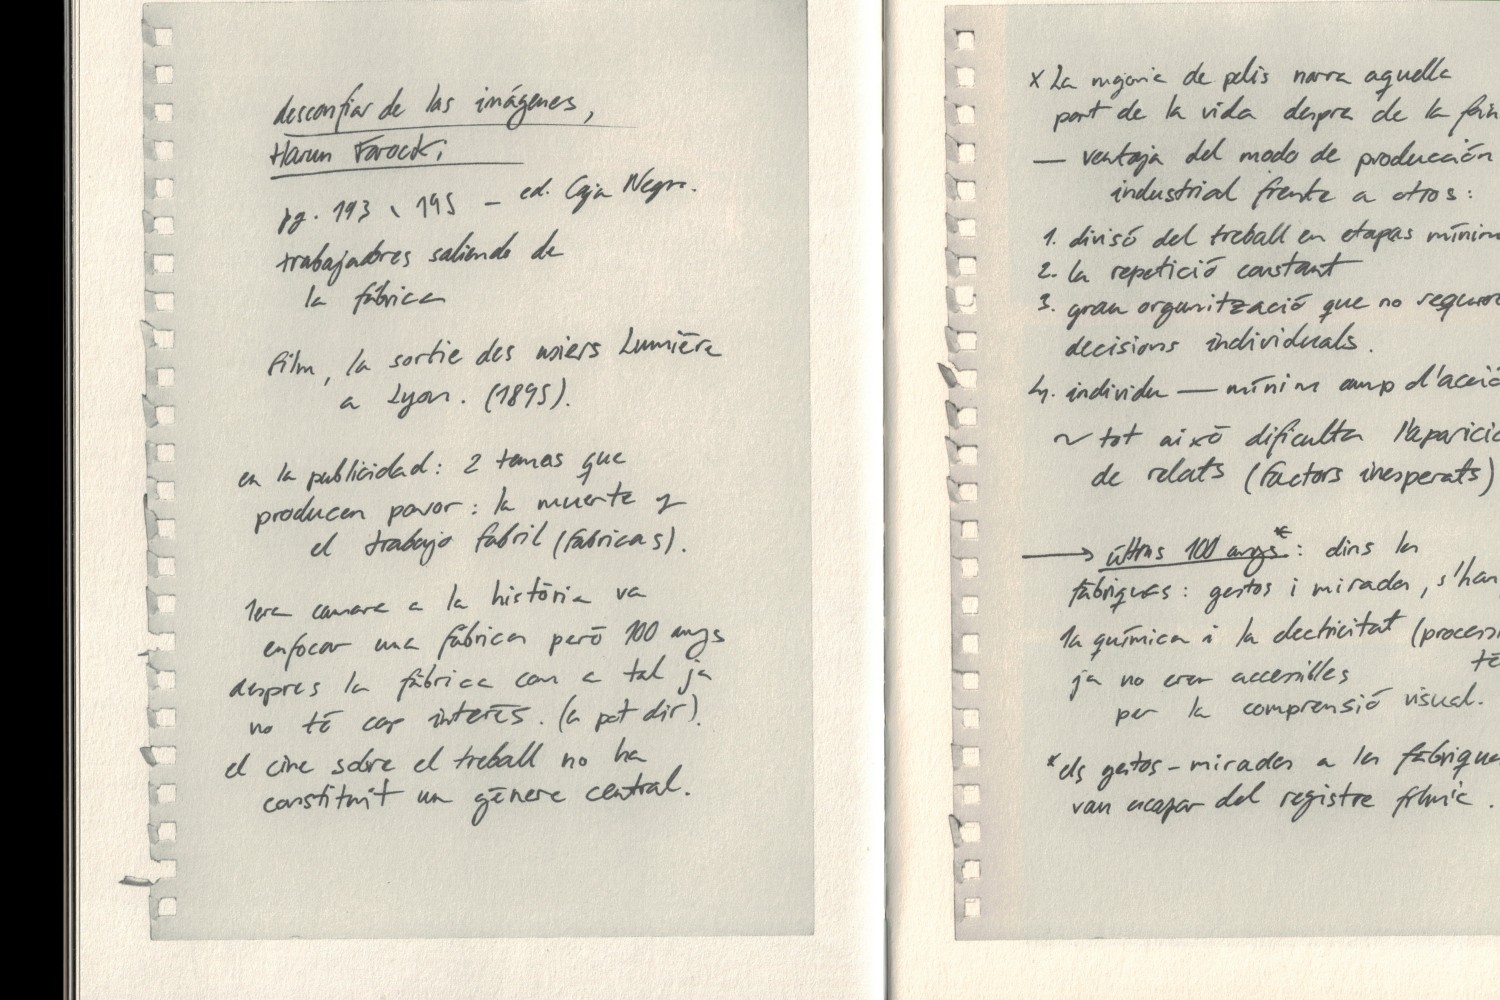 desconfiar de las imágenes,
Harun Farocki
pg. 193 \ 195 – ed. Caja Negra.
trabajadores saliendo de
la fábrica
Film, la sortie des usiers Lumière
a Lyon. (1895).
en la publicidad: 2 temas que
producen pavor: la muerte y
el trabajo fabril (fabricas).
1era camara a la història va
enfocar una fàbrica però 100 anys
despres la fàbrica com a tal ja
no té cap interès. (es pot dir).
el cine sobre el treball no ha
constituït un gènere central.
x La majoria de pelis narra aquella
part de la vida despres de la fein
— ventaja del modo de producción
industrial frente a otros:
1. divisó del treball en etapas mínim
2. la repetició constant
3. gran organització que no requere
decisions individuals.
4. individu — mínim camp d'acció
~ tot això dificulta l'aparició
de relats (factors inesperats)
→ últims 100 anys*: dins les
fàbriques: gestos i mirades, s'han
la química i la electricitat (process
ja no eren accesibles
per la comprensió visual.
*els gestos – mirades a les fàbrique
van escapar del registre fílmic.